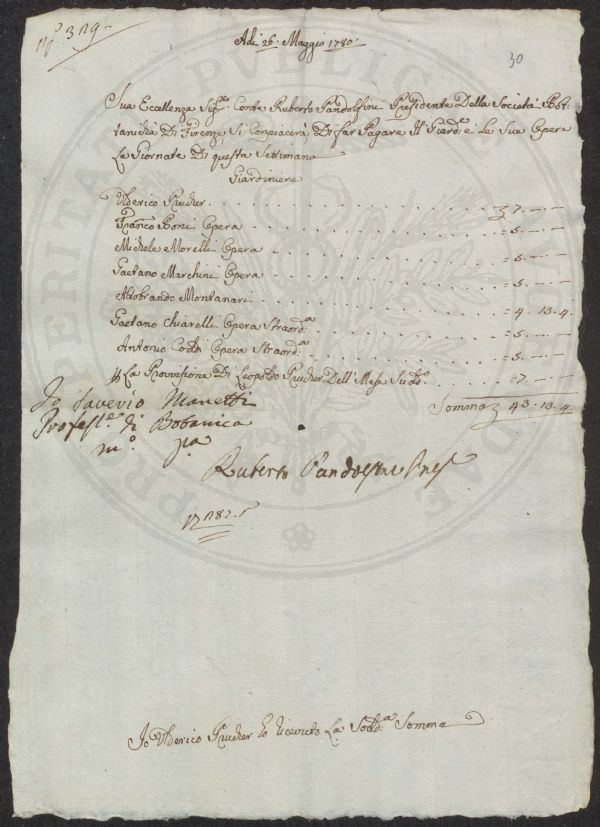 N.º 319.
30
Adì 26. Maggio 1780.
Sua Eccellenza Sig.re Conte Ruberto Pandolfini Presidente Della Società Bot-
tanicha Di Firenze Si Conpiacerà, Di far Pagare Il Giard.e e le Sue Opere
Le Giornate Di questa Settimana
Giardiniere
Ulderico Prucher . . . 7. — —
Franco Boni Opera . . . = 5. — —
Michele Morelli Opera . . . = 5. — —
Gaetano Marchini Opera . . . = 5. — —
Aldobrando Montanari . . . = 4. 13. 4.
Gaetano Chiarelli Opera Straord.a . . . = 5. — —
Antonio Opera Straord.a . . . = 5. — —
La Provisione Di Leopoldo Prucher Dell' Mese Sudd.o . . . = 7. — —
Somma 43. 13. 4
Io Saverio Manetti
Profess.e di Botanica
m.o p.a
Ruberto Pandolfini Pres.
PROSPERITATI PUBLICAE AUGENDAE
Io Ulderico Prucher ho ricevuto La Sodd.a Somma